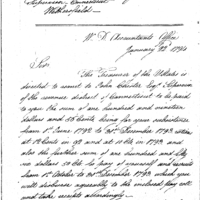 Supervisor Connecticut
Wethersfield
W. D. Accountants Office
January 22d 1794
Sir
The Treasurer of the U States is
directed to remit to John Chester Esq. Supervisor
of the revenue district of Connecticut to be paid
to you the sum of one hundred and nineteen
dollars and 55 Cents being for your
from 1st June 1793 to 30th December 1793
at 12 Cents in 92 and 10 Cts in 1793 and
also the further sum of one hundred and fifty
dollars 50 Cts for pay of yourself and
from 1st October to 30th December 1793 which you
will disburse agreeably to the enclosed Pay roll
and take receipts accordingly